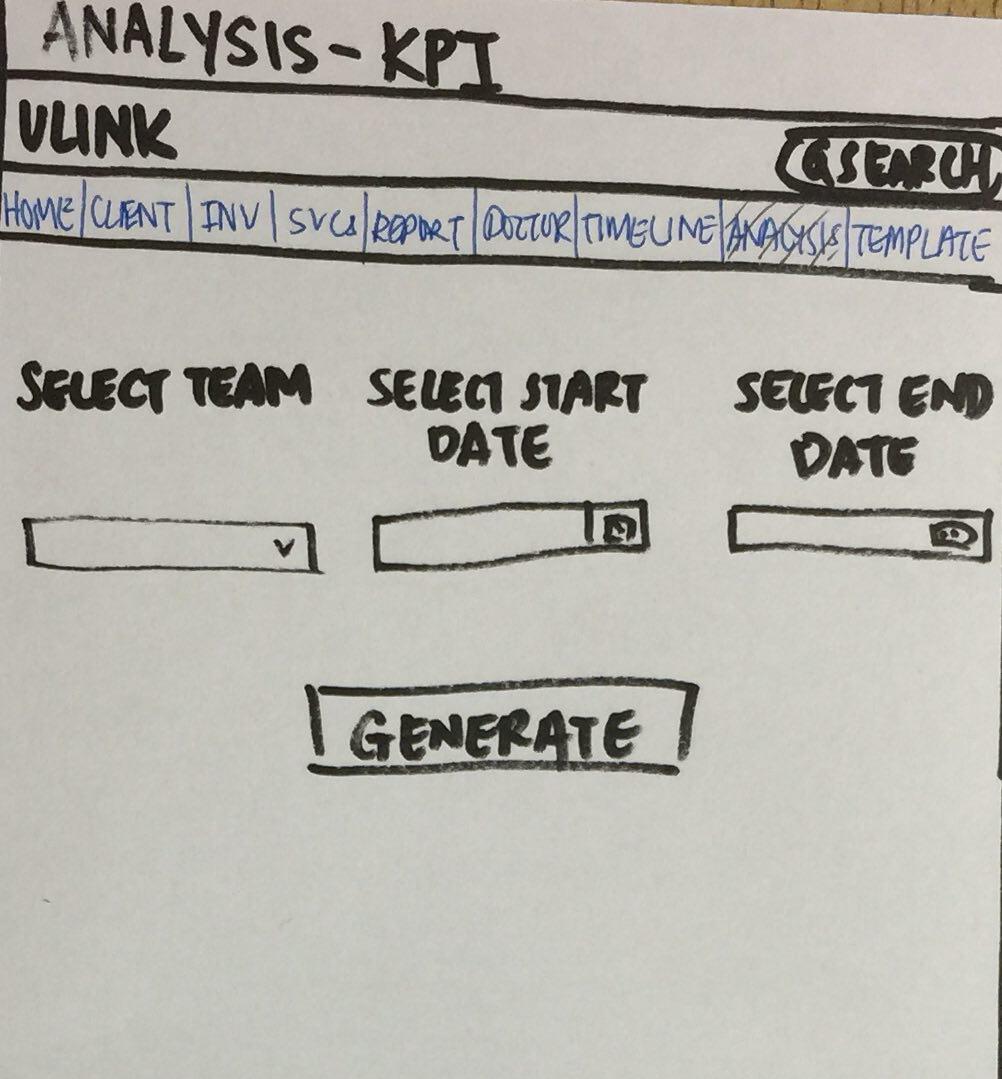 ANALYSIS - KPI
VLINK
SEARCH
HOME CLIENT INV SVCs REPORT DOCTOR TIMELINE ANALYSIS TEMPLATE
SELECT TEAM SELECT START DATE SELECT END DATE
GENERATE